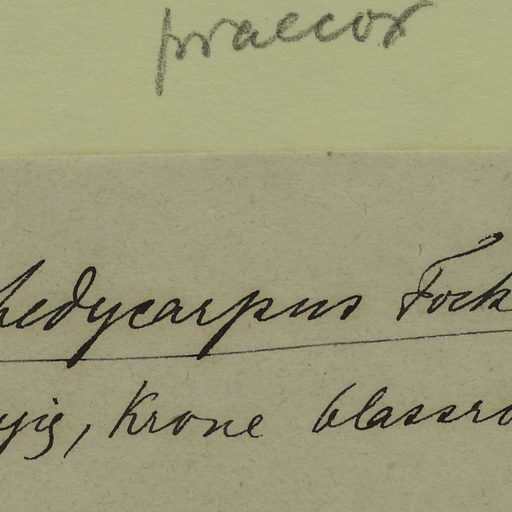 praecox
hedycarpus Fock
yig, Krone blassro